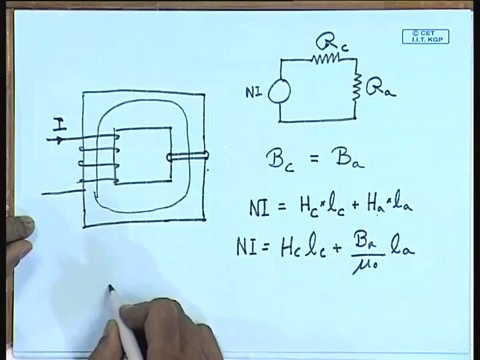 © CET
I.I.T. KGP
R_c
NI
R_a
I
B_c = B_a
NI = H_c * l_c + H_a * l_a
NI = H_c l_c + B_a/μ_0 l_a